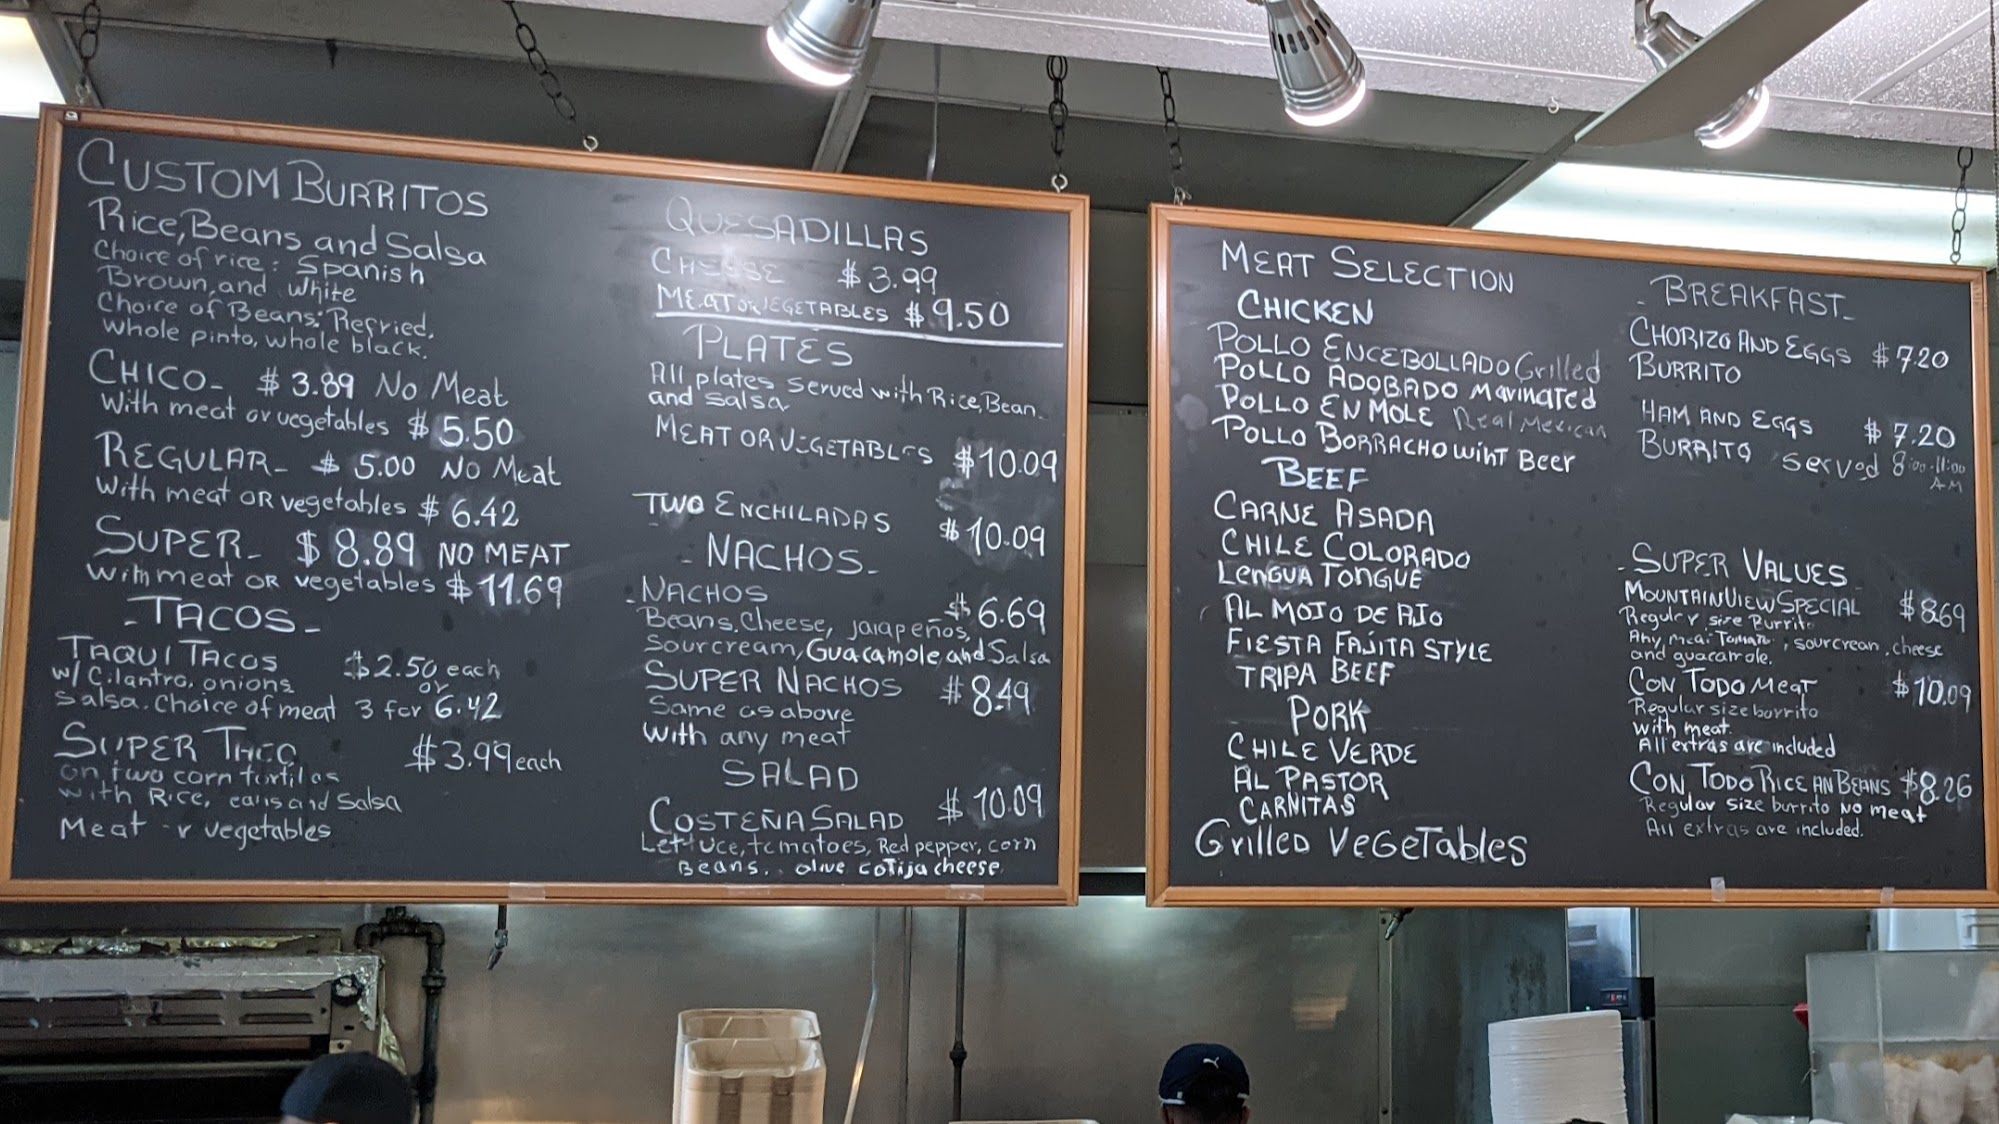 CUSTOM BURRITOS
Rice, Beans and Salsa
Choice of rice: Spanish
Brown, and White
Choice of Beans: Refried,
whole pinto, whole black.
CHICO- $3.89 No Meat
With meat or vegetables $5.50
REGULAR- $5.00 NO Meat
With meat OR vegetables $6.42
SUPER- $8.89 NO MEAT
With meat OR vegetables $11.69
-TACOS-
TAQUI TACOS $2.50 each
w/ Cilantro, onions or
Salsa. Choice of meat 3 for 6.42
SUPER $3.99 each
on two corn tortilas
with Rice, and Salsa
Meat vegetables
QUESADILLAS
CHEESE $3.99
MEAT OR VEGETABLES $9.50
PLATES
All plates served with Rice, Bean
and Salsa
MEAT OR VEGETABLES $10.09
TWO ENCHILADAS $10.09
- NACHOS -
-NACHOS $6.69
Beans, Cheese, jalapeños,
Sour cream, Guacamole, and Salsa
SUPER NACHOS $8.49
Same as above
With any meat
SALAD
COSTEÑA SALAD $10.09
Lettuce, tomatoes, Red pepper, corn
BEANS, olive coTija cheese.
MEAT SELECTION
CHICKEN
POLLO ENCEBOLLADO Grilled
POLLO ADOBADO Marinated
POLLO EN MOLE Real Mexican
POLLO BORRACHO wiht Beer
BEEF
CARNE ASADA
CHILE COLORADO
LENGUA TONGUE
AL MOJO DE AJO
FIESTA FAJITA STYLE
TRIPA BEEF
PORK
CHILE VERDE
AL PASTOR
CARNITAS
GrilleD VeGeTables
- BREAKFAST -
CHORIZO AND EGGS $7.20
BURRITO
HAM AND EGGS $7.20
BURRITO served 8:00-11:00
AM
- SUPER VALUES
MOUNTAIN VIEW SPECIAL $8.69
Regular size Burrito
Any meat Tomato, sour cream, cheese
and guacamole.
CON TODO MEAT $10.09
Regular size borrito
with meat.
All extras are included
CON TODO RICE AN BEANS $8.26
Regular size burrito NO meat
All extras are included.